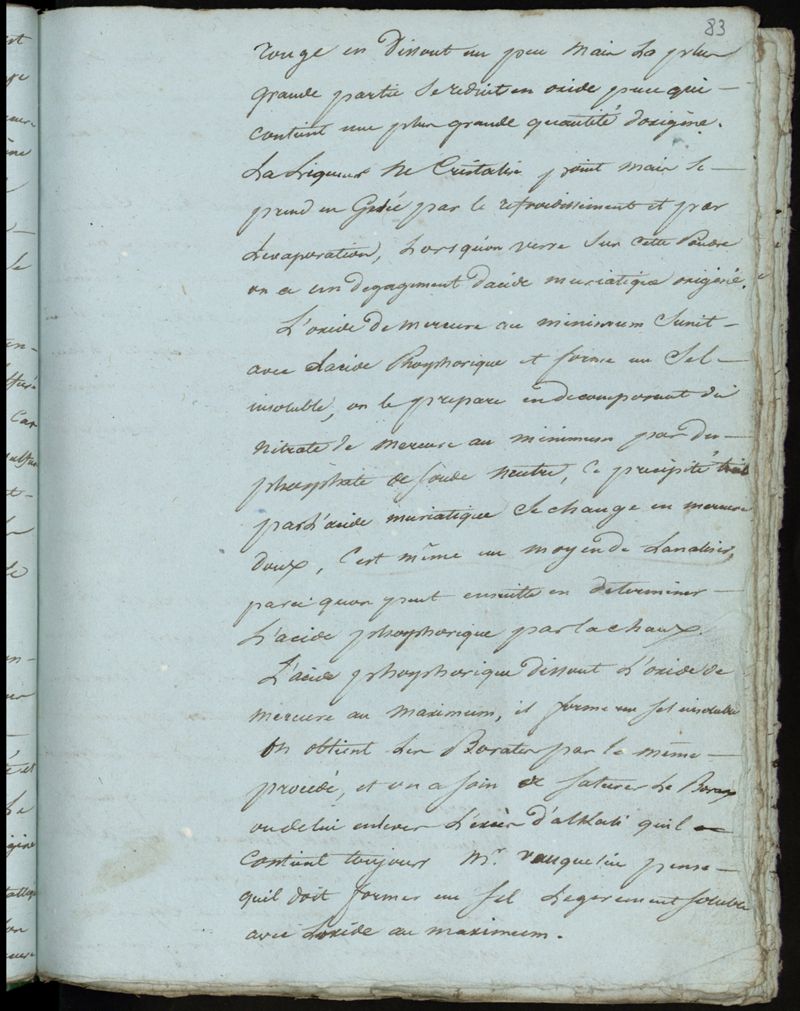 83
rouge en dissout un peu mais la plus
grande partie se reduit en oxide puce qui —
contient une plus grande quantité d'oxigène.
La Liqueur ne Cristalise point mais se —
prend en Gelée par le refroidissement et par
L'evaporation, Lorsqu'on verse sur cette Poudre
on a un degagement d'acide muriatique oxigéné.
L'oxide de mercure au minimum s'unit —
avec L'acide Phosphorique et forme un Sel —
insoluble, on le prepare en decomposant du
Nitrate de mercure au minimum par du —
phosphate de soude neutre, Ce precipité traité
par L'acide muriatique se change en mercure
doux, C'est même un moyen de L'analiser,
parce qu'on peut ensuitte en determiner —
L'acide phosphorique par la chaux.
L'acide phosphorique dissout L'oxide de
mercure au maximum, il forme un sel insoluble
On obtient Les Borates par le même —
procédé, et on a soin de saturer Le Borax
ou de lui enlever L'excès d'alkali qu'il —
Contient toujours Mr. Vauquelin pense —
qu'il doit former un sel Legerement soluble
avec L'oxide au maximum.